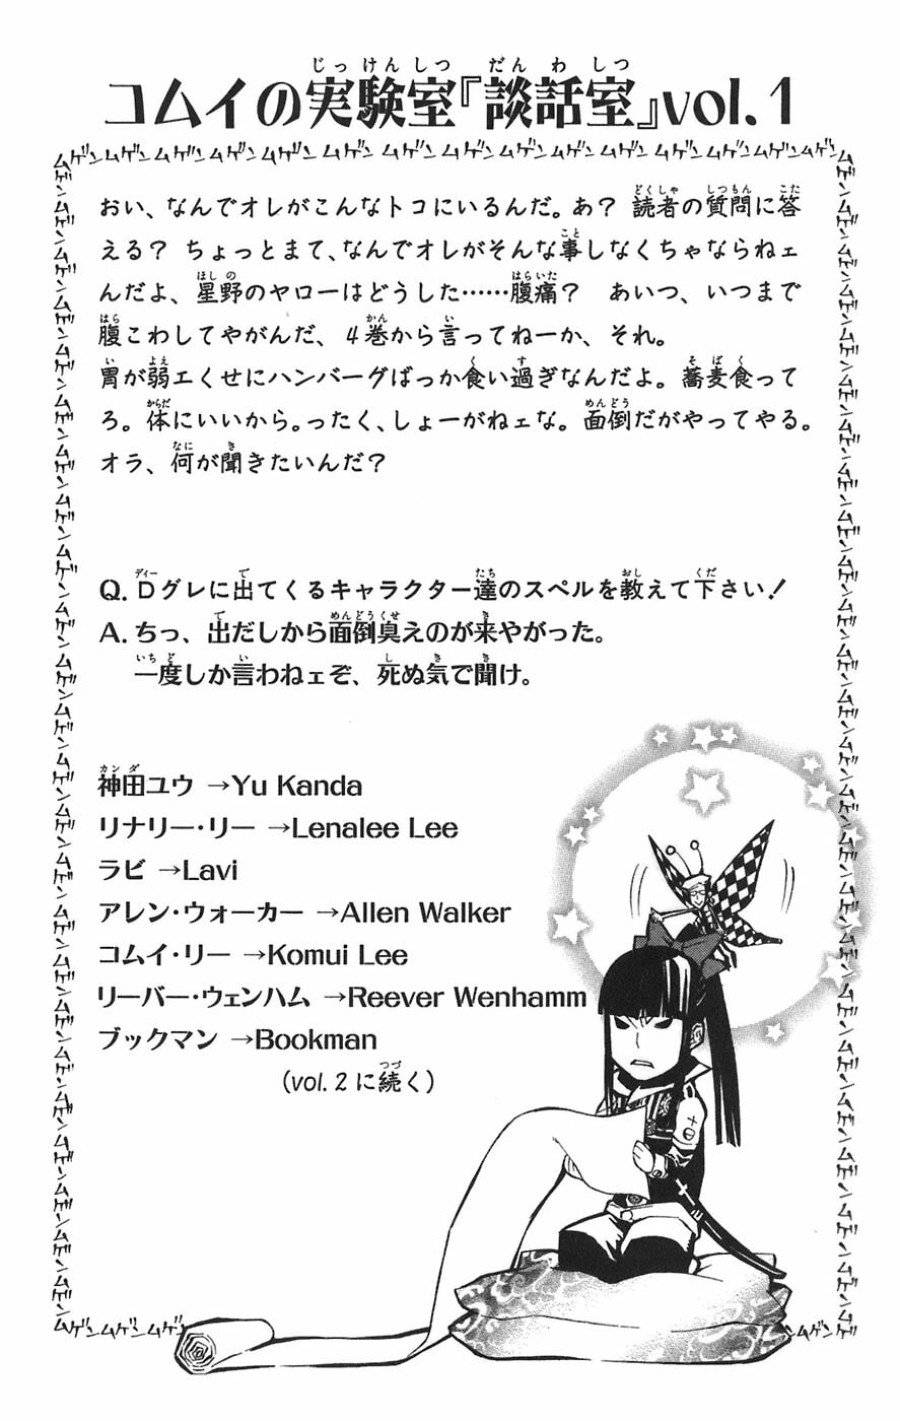 コムイの実験室『談話室』vol.1
おい、なんでオレがこんなトコにいるんだ。あ? 読者の質問に答
える? ちょっとまて、なんでオレがそんな事しなくちゃならねェ
んだよ、星野のヤローはどうした……腹痛? あいつ、いつまで
腹こわしてやがんだ、4巻から言ってねーか、それ。
胃が弱エくせにハンバーグばっか食い過ぎなんだよ。蕎麦食って
ろ。体にいいから。ったく、しょーがねェな。面倒だがやってやる。
オラ、何が聞きたいんだ?
Q. Dグレに出てくるキャラクター達のスペルを教えて下さい!
A. ちっ、出だしから面倒臭えのが来やがった。
一度しか言わねェぞ、死ぬ気で聞け。
神田ユウ →Yu Kanda
リナリー・リー →Lenalee Lee
ラビ →Lavi
アレン・ウォーカー →Allen Walker
コムイ・リー →Komui Lee
リーバー・ウェンハム →Reever Wenhamm
ブックマン →Bookman
(vol.2に続く)